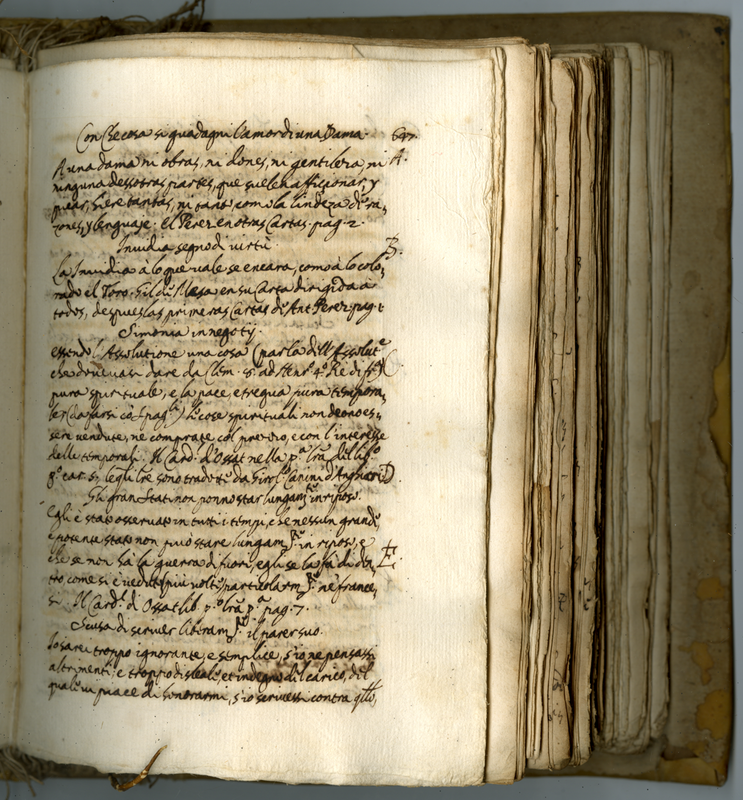 Con che cosa si guadagni l'amor di una Dama. 697.
A una dama ni obras, ni dones, ni gentileza, ni A.
ninguna dessotras partes, que suelen afficionar, y
picar, hiere tantas, ni tanto como la lindeza de ra,
zones, y lenguaje. el Perez en otras Cartas. pag. 2.
Invidia segno di virtù. B.
La Invidia à lo que vale se encara, como à lo colo,
rado el Toro. Gil de Mesa en su Carta dirigida à
todos, despues las primeras Cartas de Ant. Perez pag. 1
Simonia in negotij.
essendo l'Assolutione una cosa (parla dell'Assolut.e
che dovevasi dare da Clem. 8. ad Henr.o 4.o Rè di fr.a) C
pura spirituale, e la pace, e tregua pura tempora,
le (da farsi co' spag.li) le cose spirituali non deono es,
sere vendute, ne comprate col prezzo, e con l'interesse
delle temporali. Il Card. d'Ossat nella p.a lra del lib.o
p.o car. 5. leqli lre sono tradotte da Girol.o Canini d'Anghiari D
Gli gran Stati non ponno star lungam.te in riposo.
Egli è stato osservato in tutti i tempi, che nessun grande,
e potente stato non può stare lungam.te in riposo, e
che se non hà la guerra di fuori, egli se la fà di den, E.
tro come si è veduto più volte, particolarm.te ne france,
si. Il Card.l d'Ossat lib. p.o lra p.a pag. 7.
Scusa di scriver liberam.te il parer suo.
Io sarei troppo ignorante, e semplice, s'io ne pensassi
altrimenti: e troppo disleale, et indegno del carico, del
quale vi piace di honorarmi, s'io scrivessi contra qllo,